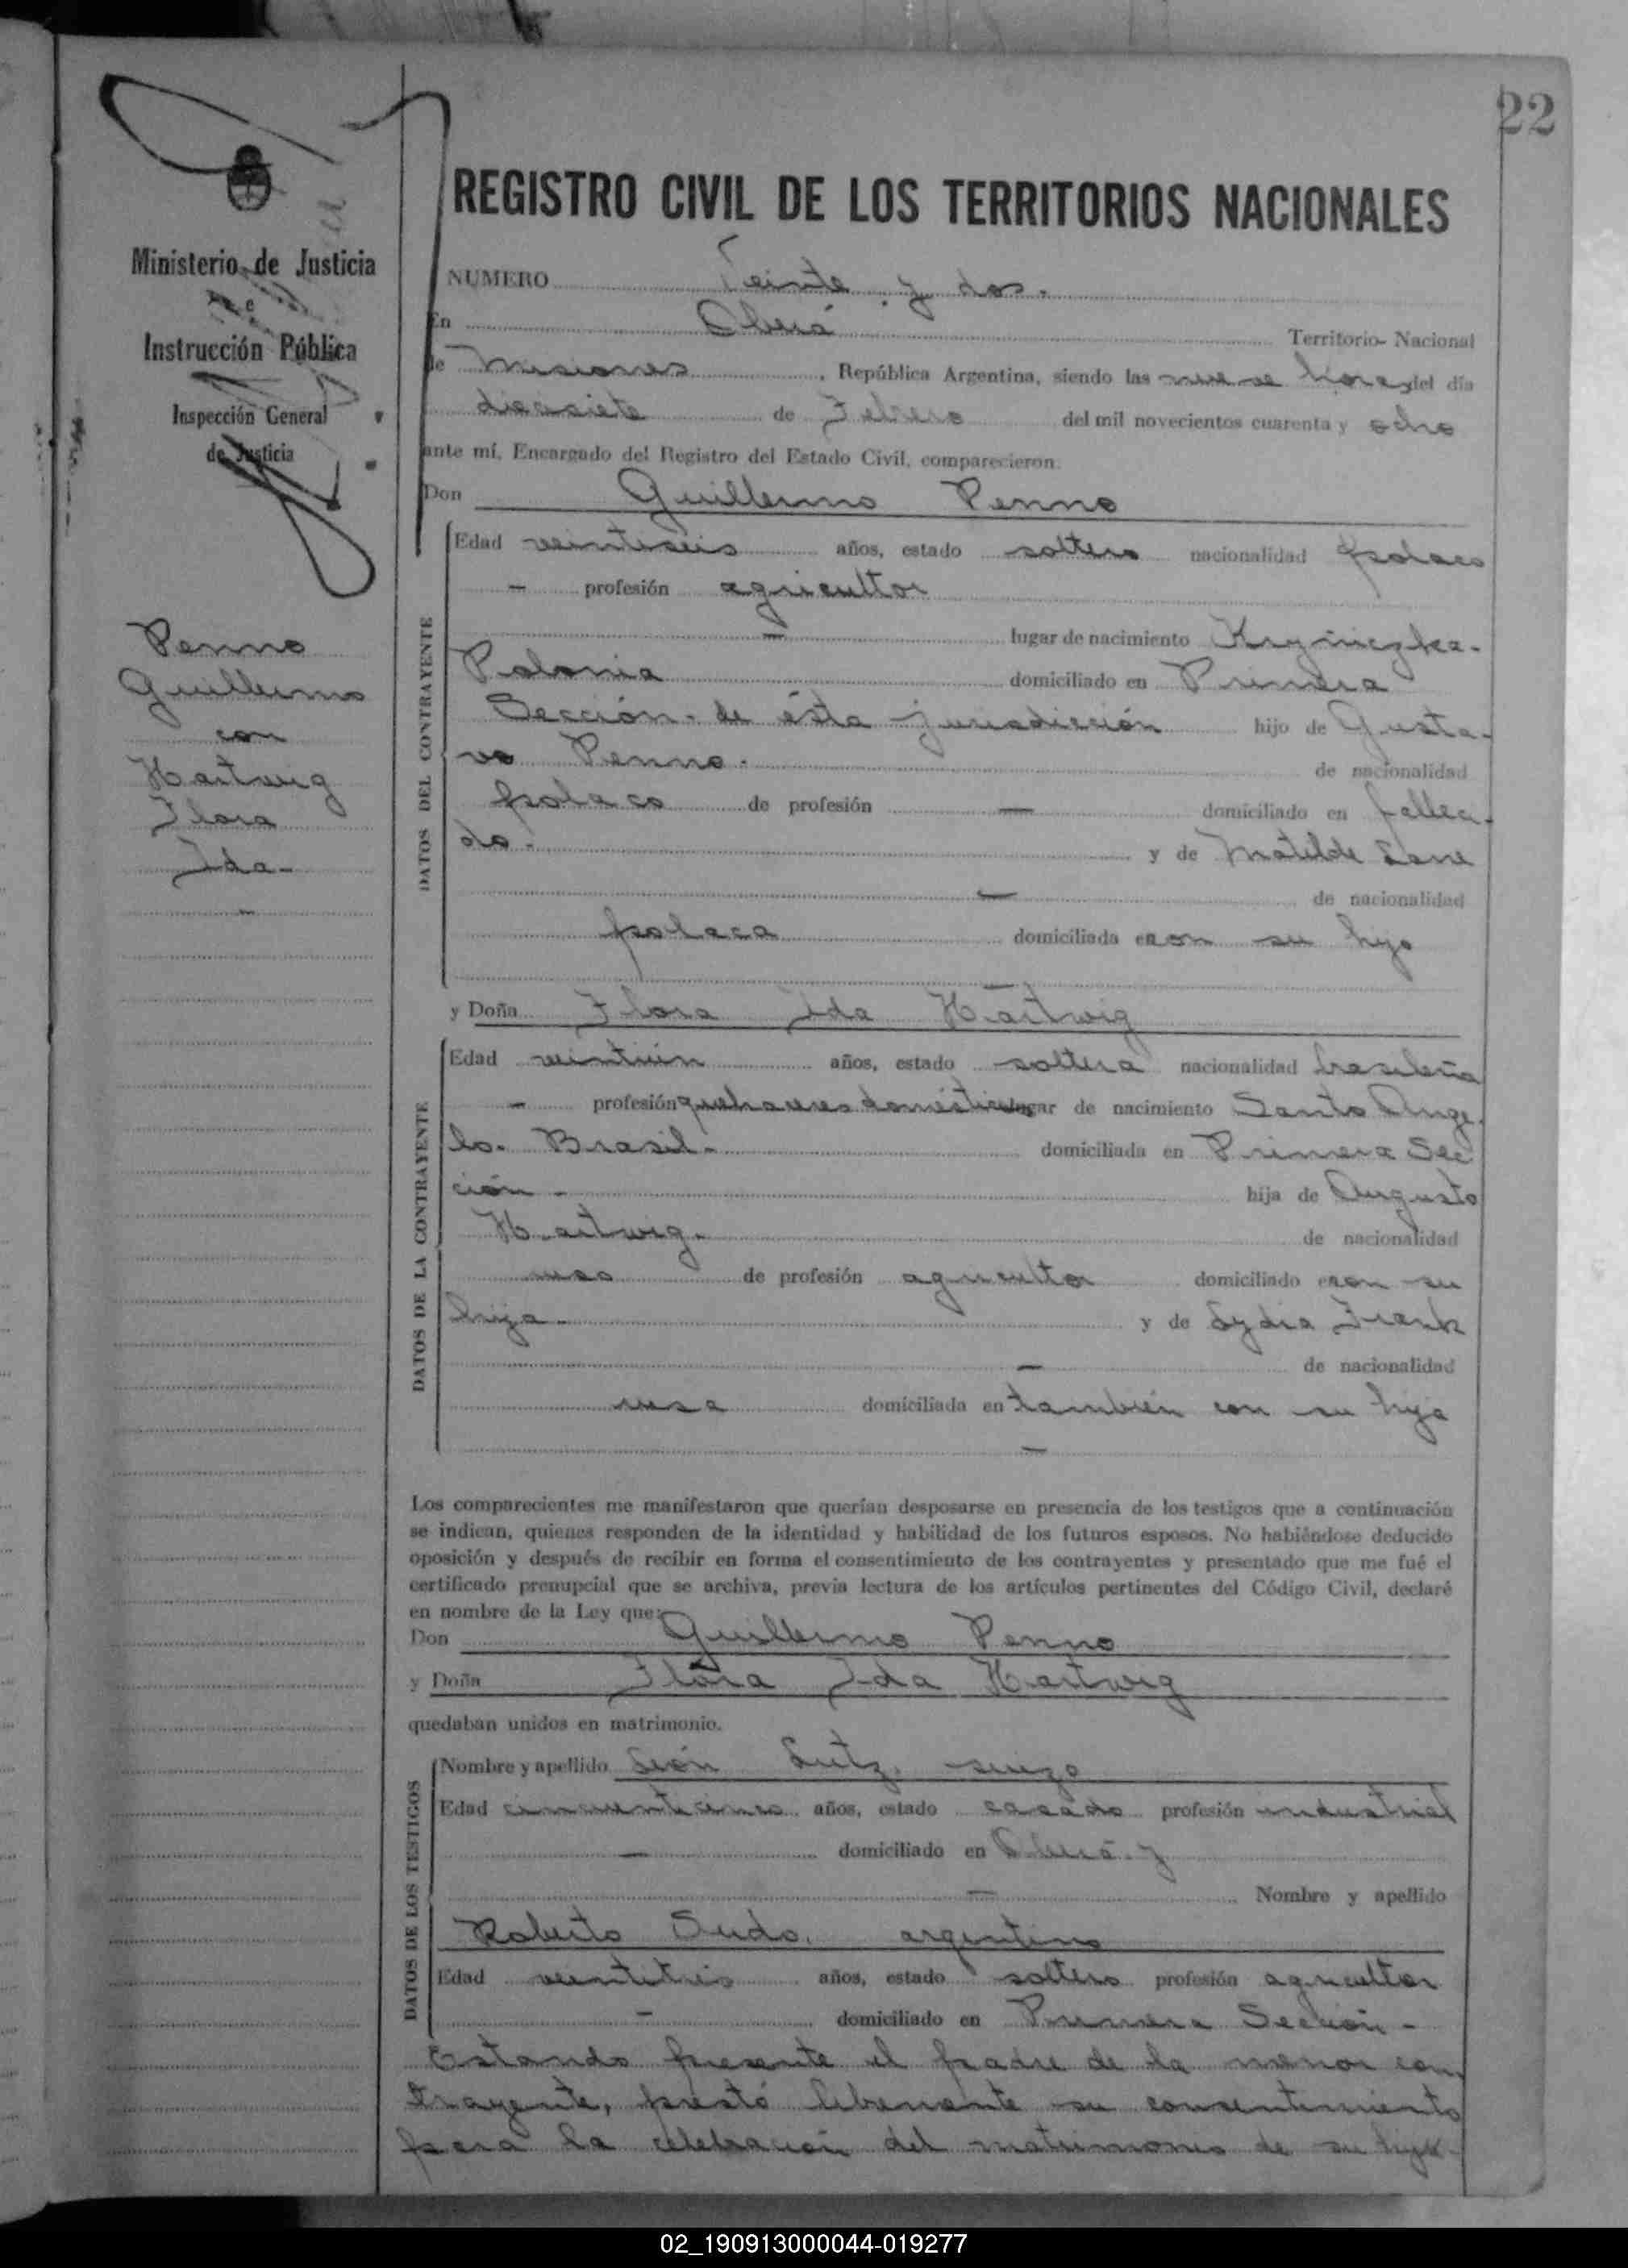 22
REGISTRO CIVIL DE LOS TERRITORIOS NACIONALES
Ministerio de Justicia
e
Instrucción Pública
Inspección General
de Justicia
Penno
Guillermo
con
Hartwig
Flora
Ida-
NUMERO Veinte y dos.
En Oberá Territorio Nacional
de Misiones, República Argentina, siendo las nueve horas del día
diecisiete de Febrero del mil novecientos cuarenta y ocho
ante mí, Encargado del Registro del Estado Civil, comparecieron:
Don Guillermo Penno
DATOS DEL CONTRAYENTE
Edad veintiseis años, estado soltero nacionalidad polaco
- profesión agricultor
- lugar de nacimiento
Polonia domiciliado en Primera
Sección de ésta jurisdicción hijo de Gusta-
vo Penno. de nacionalidad
polaco de profesión — domiciliado en falleci-
do. y de Matilde
— de nacionalidad
polaca domiciliada en con su hijo
—
y Doña Flora Ida Hartwig
DATOS DE LA CONTRAYENTE
Edad veintiún años, estado soltera nacionalidad brasileña
- profesión quehaceres domésticos lugar de nacimiento Santo Ange-
lo. Brasil. domiciliada en Primera Sec
ción - hija de Augusto
Hartwig. de nacionalidad
ruso de profesión agricultor domiciliado en con su
hija - y de Lydia Frank
— de nacionalidad
rusa domiciliada en también con su hija
—
Los comparecientes me manifestaron que querían desposarse en presencia de los testigos que a continuación
se indican, quienes responden de la identidad y habilidad de los futuros esposos. No habiéndose deducido
oposición y después de recibir en forma el consentimiento de los contrayentes y presentado que me fué el
certificado prenupcial que se archiva, previa lectura de los artículos pertinentes del Código Civil, declaré
en nombre de la Ley que:
Don Guillermo Penno
y Doña Flora Ida Hartwig
quedaban unidos en matrimonio.
DATOS DE LOS TESTIGOS
Nombre y apellido León Lutz, suizo
Edad cincuenticinco años, estado casado profesión industrial
— domiciliado en Oberá y
— Nombre y apellido
Roberto Sudo, argentino
Edad veintitrés años, estado soltero profesión agricultor
- domiciliado en Primera Sección -
Estando presente el padre de la menor con
trayente, prestó libremente su consentimiento
para la celebración del matrimonio de su hija-
02_190913000044-019277